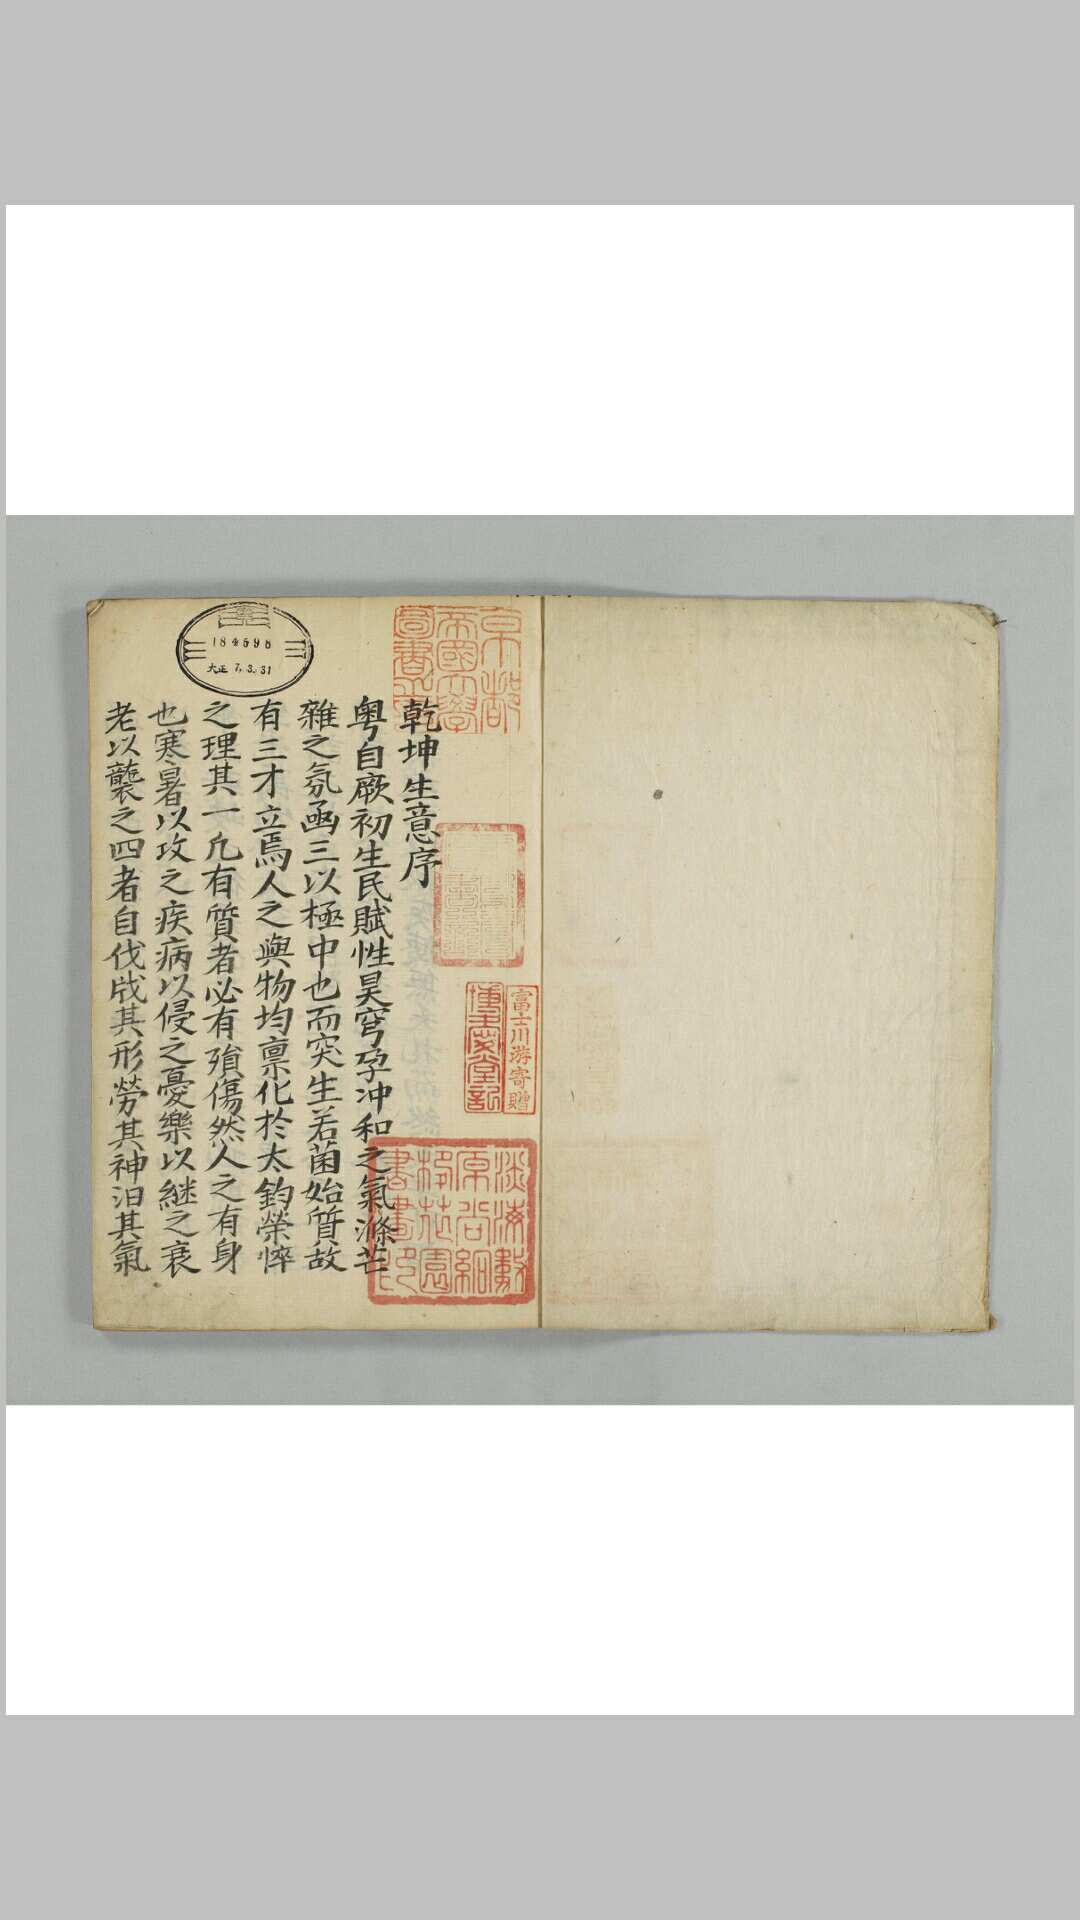 乾坤生意序
粤自厥初生民賦性昊穹孕冲和之氣滌芒
雜之氛函三以極中也而突生若菌始質故
有三才立焉人之與物均禀化於太鈞榮悴
之理其一凡有質者必有殞傷然人之有身
也寒暑以攻之疾病以侵之憂樂以継之衰
老以襲之四者自伐戕其形勞其神汨其氣
京都
帝國大學
圖書
富士川游寄贈
184598
大正 7.3.31